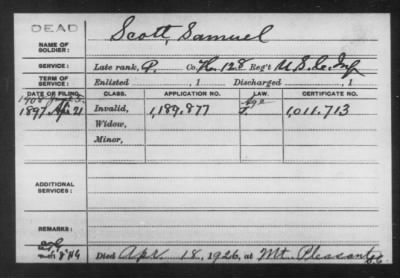 DEAD
NAME OF SOLDIER: Scott, Samuel
SERVICE: Late rank, P. Co. H. 128 Reg't U.S.C. Inf
TERM OF SERVICE: Enlisted , 1 Discharged , 1
DATE OF FILING. CLASS. APPLICATION NO. LAW. CERTIFICATE NO.
1908
1897 Apr 21 Invalid, 1,189,877 Age 1,011,713
Widow,
Minor,
ADDITIONAL SERVICES:
REMARKS:
Died Apr. 18, 1926, at Mt. Pleasant, S.C.